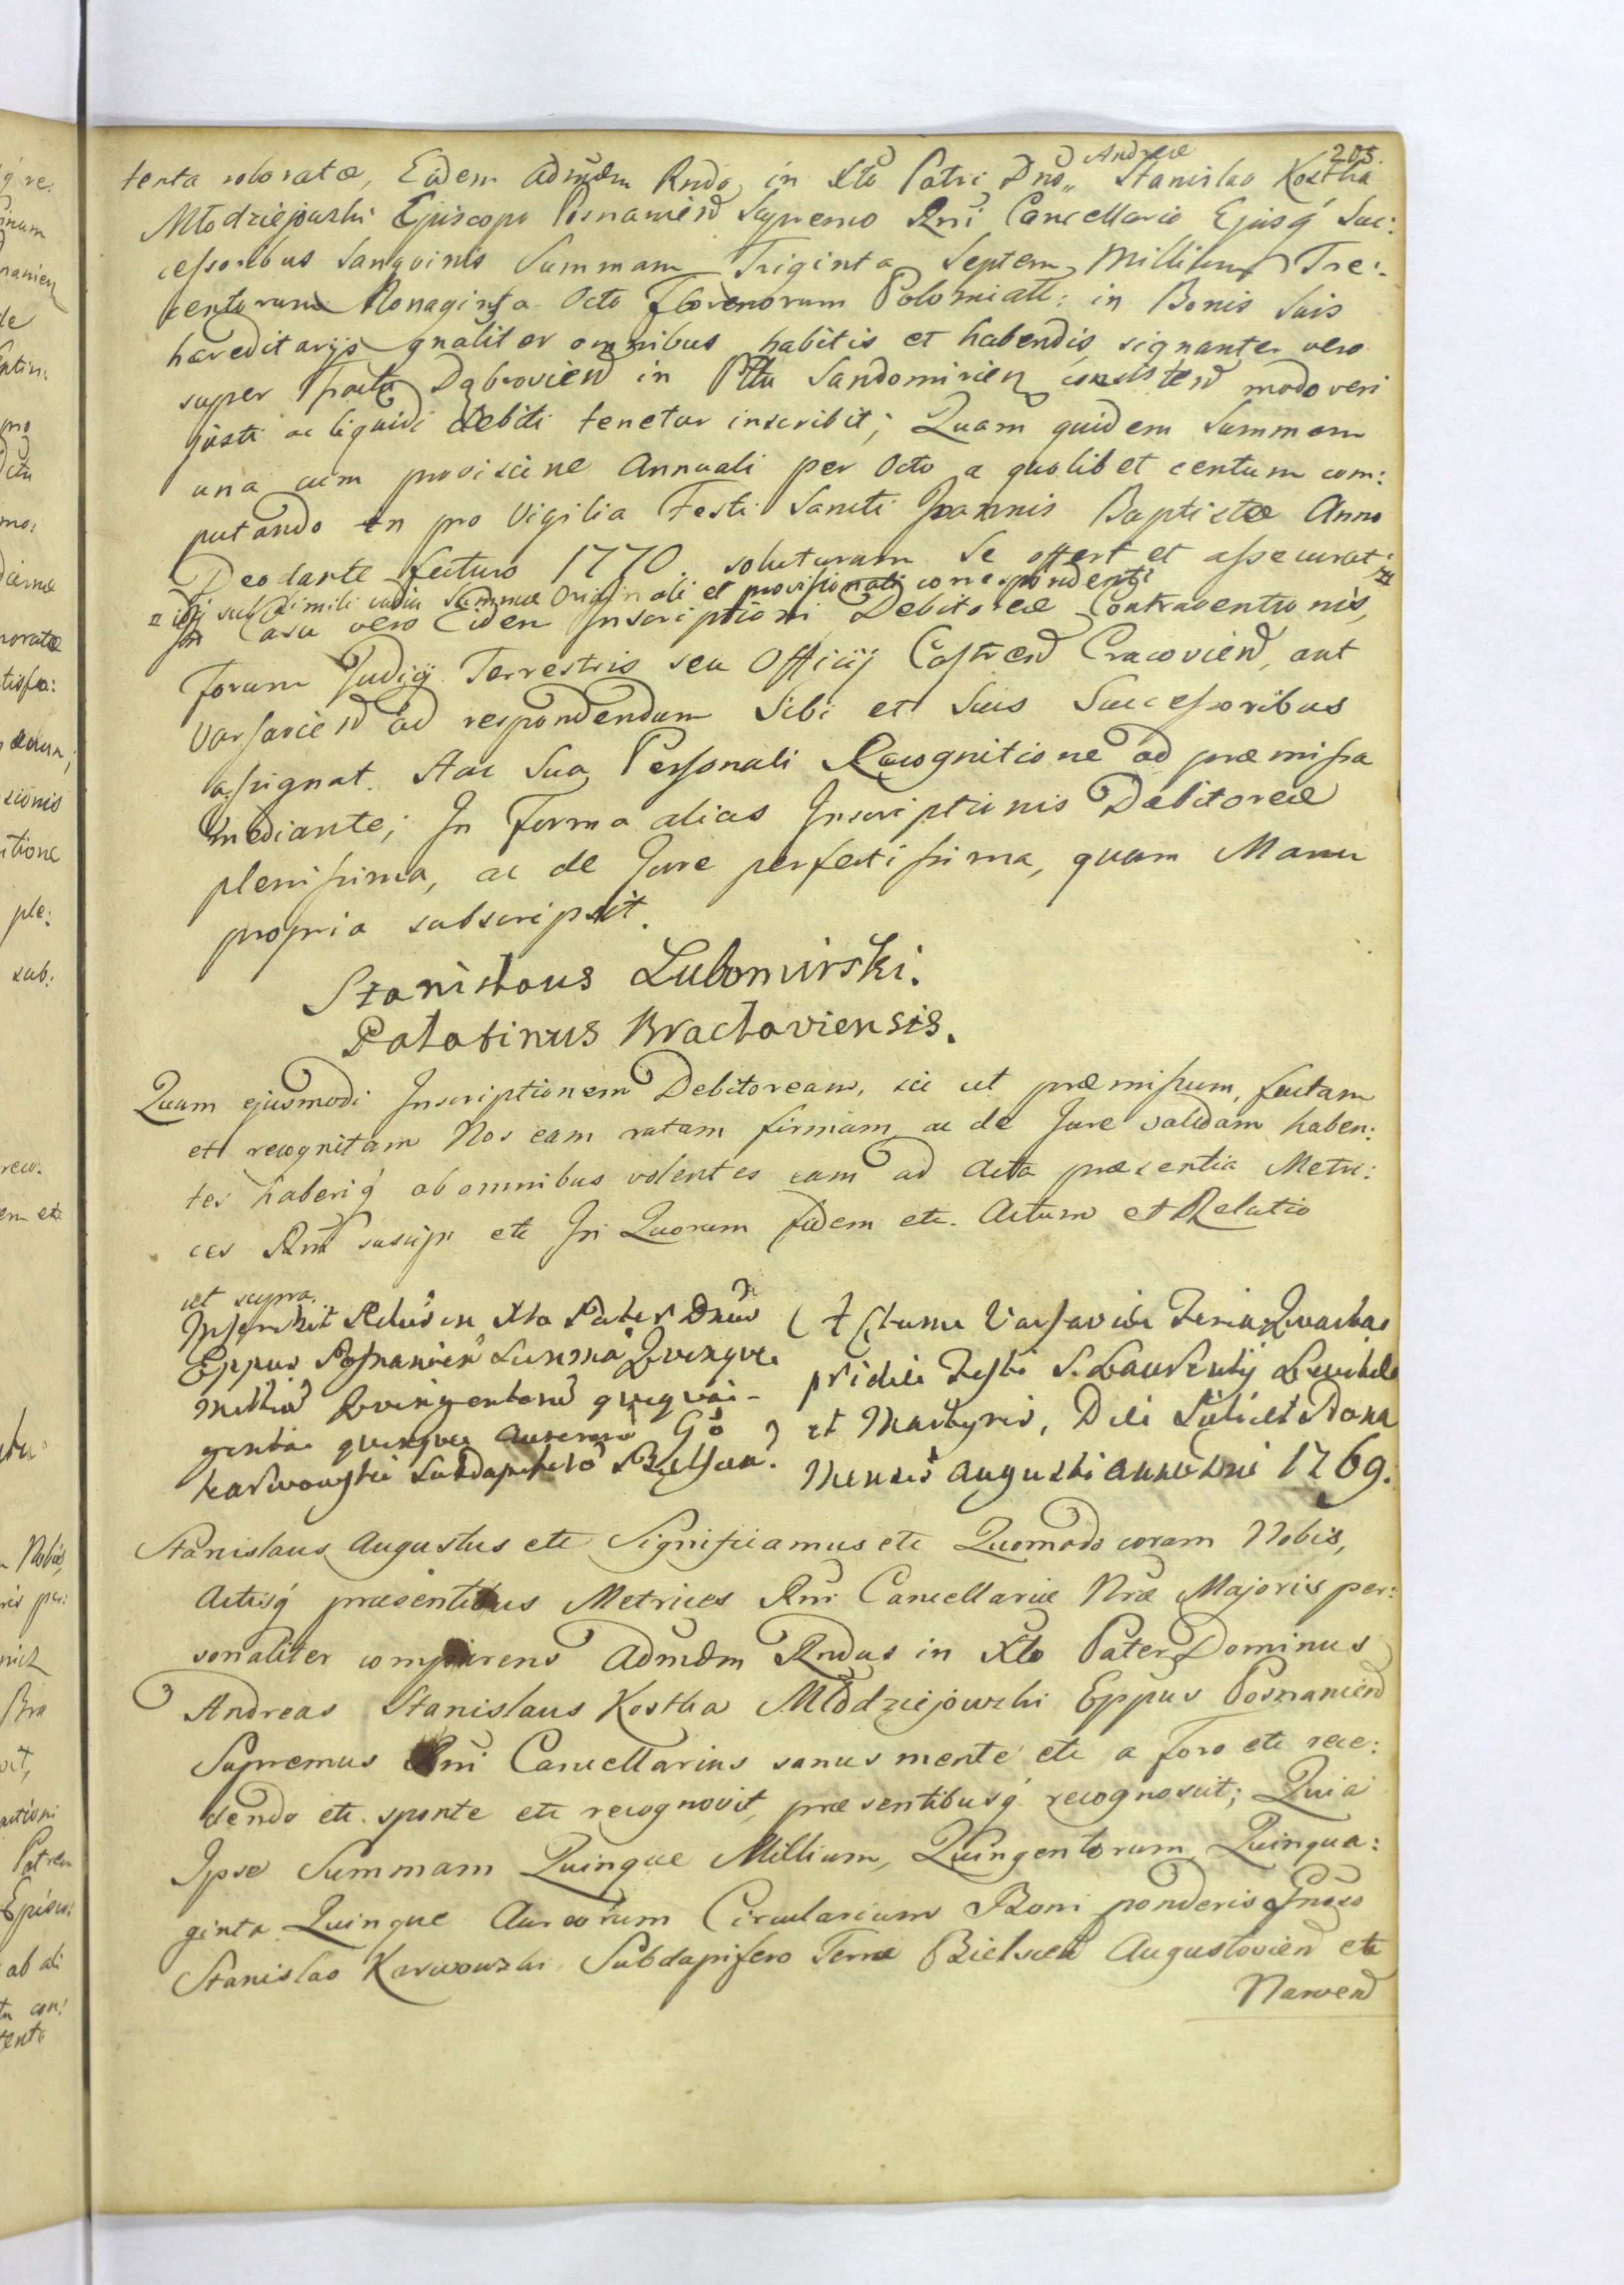 205.
Andreæ
tenta roboratæ, Eidem Admdm Rndo in Xto Patri Dno„ Stanislao Kostka
Młodziejowski Episcopo Posnanien Supremo Rni Cancellario Ejusq́ Suc:
cessoribus Sanguinis Summam Triginta Septem Millium Tre:
centorum Nonaginta Octo Florenorum Polonicall: in Bonis Suis
hæreditarijs gnaliter omnibus habitis et habendis, signanter vero
super Dąbrovien in Pttu Sandomirien consisten modo veri
justi ac liquidi debiti tenetur inscribit; Quam quidem Summam
una cum provisione Annuali per Octo a quolibet centum com:
putando in pro Vigilia Festi Sancti Joannis Baptistæ Anno
Deodante futuro 1770. soluturum se offert et assecurat
sub simili vadio Summæ Originali et provisionali correspondenti
In Casu vero Eidem Inscriptioni Debitoreæ Contraventionis,
forum Judicij Terrestris seu Officij Castren Cracovien, aut
Varsavien ad respondendum Sibi et Suis Successoribus
assignat. Hac Sua Personali Recognitione ad præmissa
mediante; In Forma alias Inscriptionis Debitoreæ
plenissima, ac de Jure perfectissima, quam Manu
propria subscripsit.
Stanislaus Lubomirski.
Palatinus Bractaviensis.
Quam ejusmodi Inscriptionem Debitoream, sic ut præmissum, factam
et recognitam Nos eam ratam firmam ac de Jure validam haben:
tes haberiq́ ab omnibus volentes eam ad Acta præsentia Metri:
ces Rni suscipi etc In Quorum fidem etc. Actum et Relatio
ut supra.
Inscribit Rdus in Xto Pater Dnus
Eppus Posnanien Summā Qvinqve
Milliu Qvingentoru qvinqvā-
ginta qvinqve Aureorū Gō
Karwowski Subdapifero Bielscen.
Actum Varsaviæ Feria Qvarta
pridie Festi S. Laurentij Levitæ
et Martyris, Die Scilicet Nona
Mensis Augusti Anno Dni 1769.
Stanislaus Augustus etc Significamus etc Quomodo coram Nobis,
Actisq́ præsentibus Metrices Rni Cancellariæ Nræ Majoris per:
sonaliter comparens Admdm Rndus in Xto Pater Dominus
Andreas Stanislaus Kostka Młodziejowski Eppus Posnanien
Supremus Rni Cancellarius sanus mente etc a foro etc rece:
dendo etc. sponte etc recognovit, præsentibusq́ recognoscit; Quia
Ipse Summam Quinque Millium, Quingentorum, Quinqua:
ginta Quinque Aureorum Circularium Boni ponderis Gnoso
Stanislao Karwowski Subdapifero Terræ Bielscen Augustovien etc
Narven